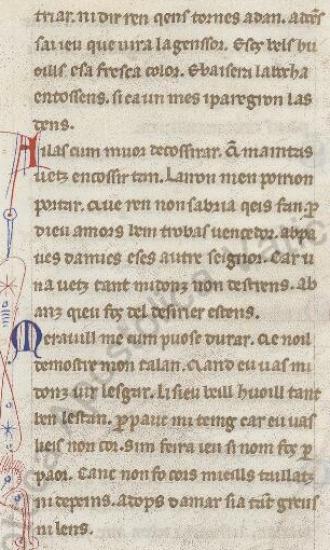 triar. ni dir ren qens tornes adan. adōcs
sai ieu que uira la genssor. Esos bels hu
oills. esa fresca color. Ebaisera la bocha
entossens. si ca un mes i paregron las
dens.
Ailas cum muor decossirar. Cā maintas
uetz en cossir tan. Lairon men poirion
portar. Que ren non sabria qeis fan. ꝑ
dieu amors bem trobas uencedor. ab pa
ucs damics eses autre seignor. Car u
na uetz tant midonz non destrens. Ab
anz qieu fos del desirier estens.
Merauill me cum puosc durar. Qe noil
demostre mon talan. Cand eu uas mi
donz uir lesgar. Li siei beill huoill tant
ben lestan. ꝑ pauc mi teing car eu uas
lieis non cor. Sim feira ieu si nom fos ꝑ
paor. Canc non fo cors mieills taillatz
ni depeins. Ad ops damar sia tāt greus
ni lens.